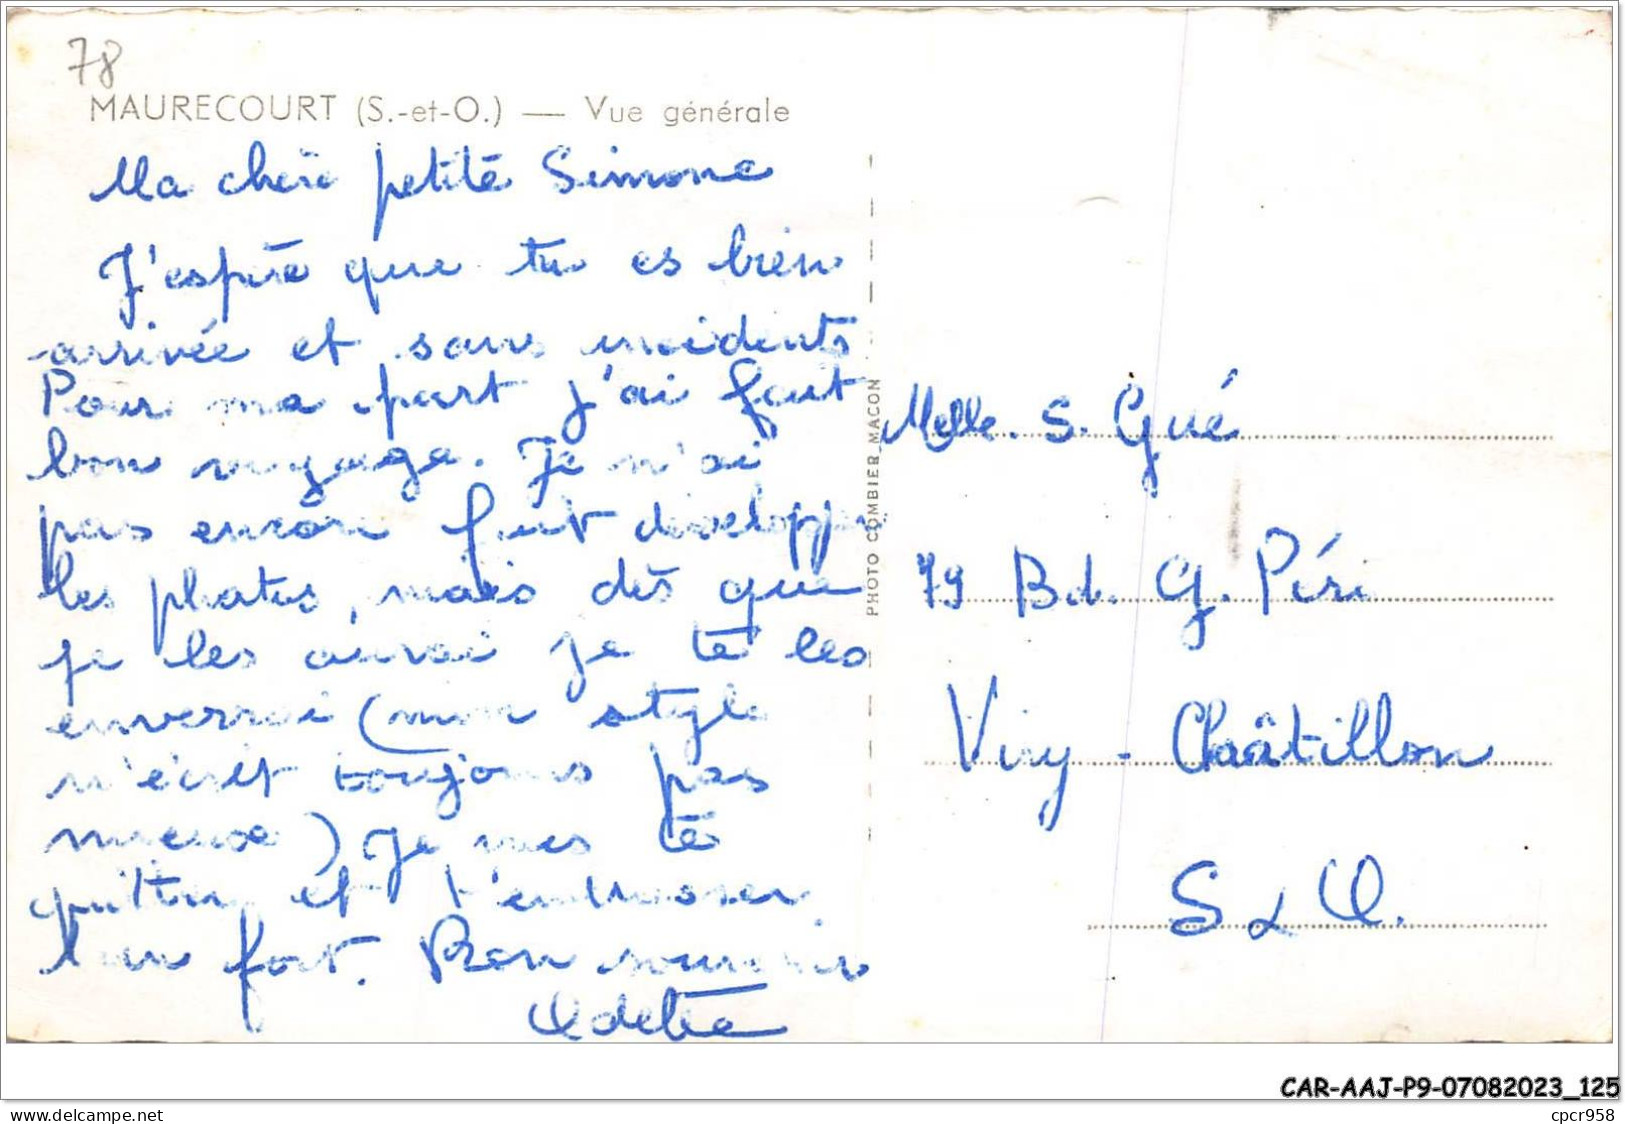 78
MAURECOURT (S.-et-O.) — Vue générale
Ma chère petite Simone
J'espère que tu es bien
arrivée et sans incidents
Pour ma part j'ai fait
bon voyage. Je n'ai
pas encore fait developper
les photos, mais dès que
je les aurai je te les
enverrai (mon style
n'écrit toujours pas
mieux) Je vais te
quitter et t'embrasser
bien fort. Bon souvenir
Odette
PHOTO COMBIER MACON
Melle. S. Gué
79 Bd. G. Péri
Viry - Châtillon
S & O.
CAR-AAJ-P9-07082023_125
www.delcampe.net
cpcr958